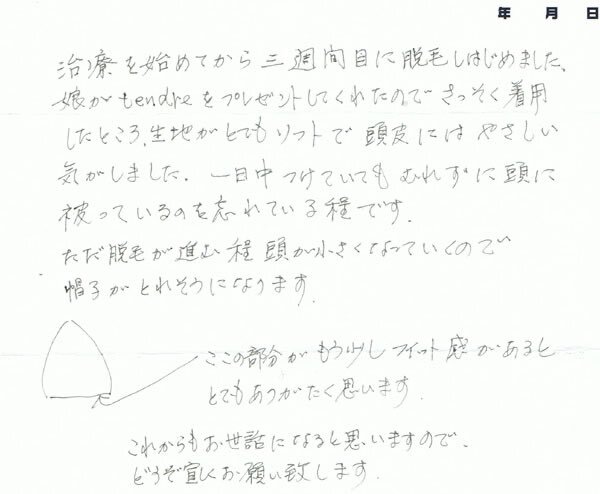 年 月 日
治療を始めてから三週間目に脱毛しはじめました、
娘がtendreをプレゼントしてくれたのでさっそく着用
したところ、生地がとてもソフトで頭皮にはやさしい
気がしました。一日中つけていてもむれずに頭に
被っているのを忘れている程です。
ただ脱毛が進む程頭が小さくなっていくので
帽子がとれそうになります。
ここの部分がもう少しフィット感があると
とてもありがたく思います。
これからもお世話になると思いますので、
どうぞ宜しくお願い致します。